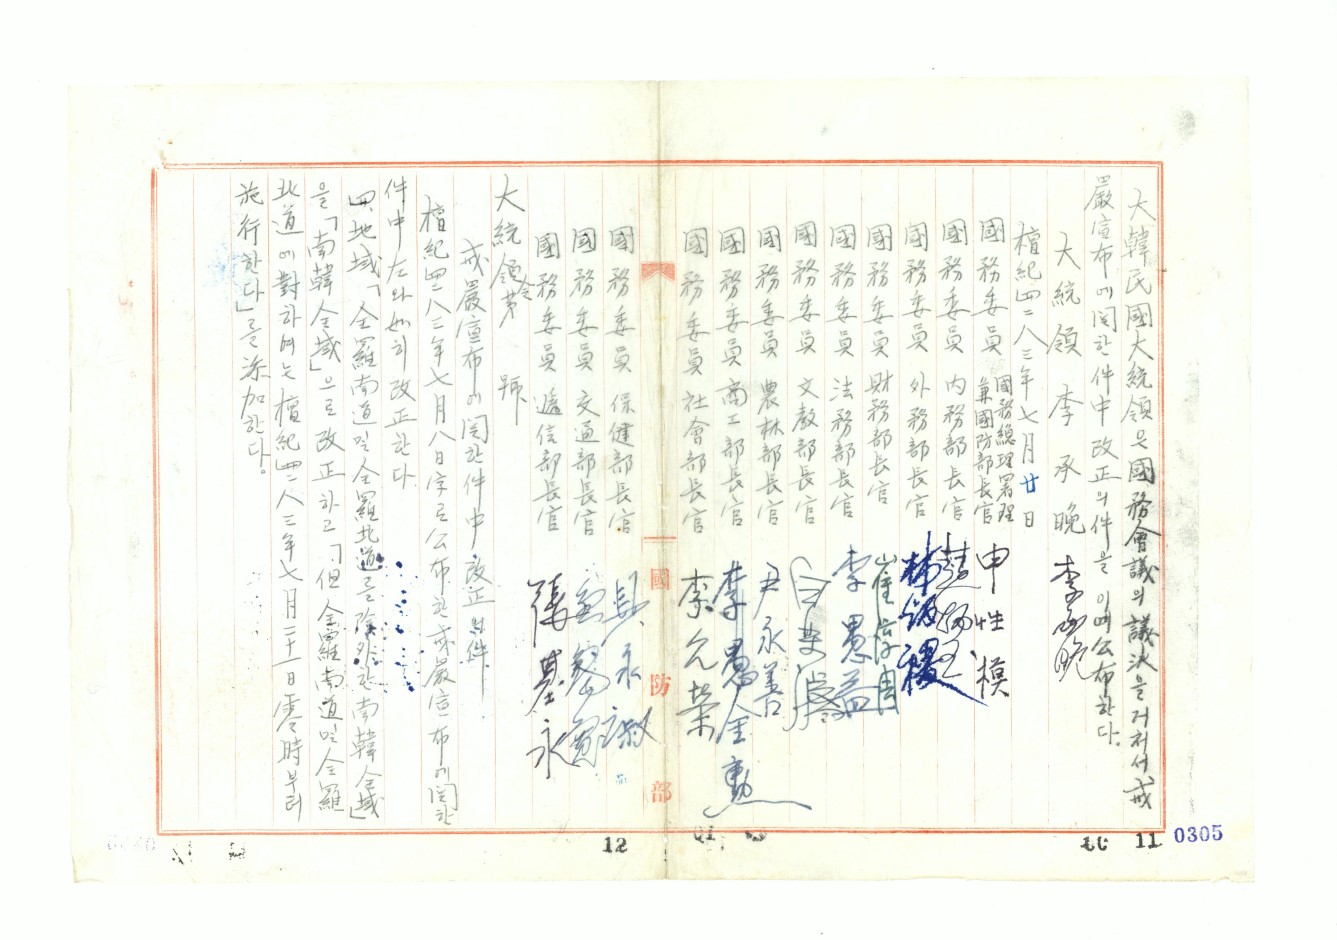 大韓民國大統領은國務會議의議決을거처서戒
嚴宣布에関한件中改正의件을이에公布한다.
大統領 李承晩 李承晩
檀紀四二八三年七月廿日
國務委員 國務總理署理
兼國防部長官 申性模
國務委員 內務部長官 趙炳玉
國務委員 外務部長官 林炳稷
國務委員 財務部長官 崔淳周
國務委員 法務部長官 李愚益
國務委員 文敎部長官
國務委員 農林部長官 尹永善
國務委員 商工部長官
國務委員 社會部長官 李允榮
國務委員 保健部長官
國務委員 交通部長官
國務委員 遞信部長官 張基永
大統領令第 號
戒嚴宣布에関한件中改正의件
檀紀四二八三年七月八日字로公布한戒嚴宣布에関한
件中左와如히改正한다.
四,地域「全羅南道및全羅北道를除外한南韓全域」
을「南韓全域」으로改正하고「但全羅南道및全羅
北道에對하여는檀紀四二八三年七月二十一日零時부터
施行한다」를添加한다.
國防部
12
11
0305